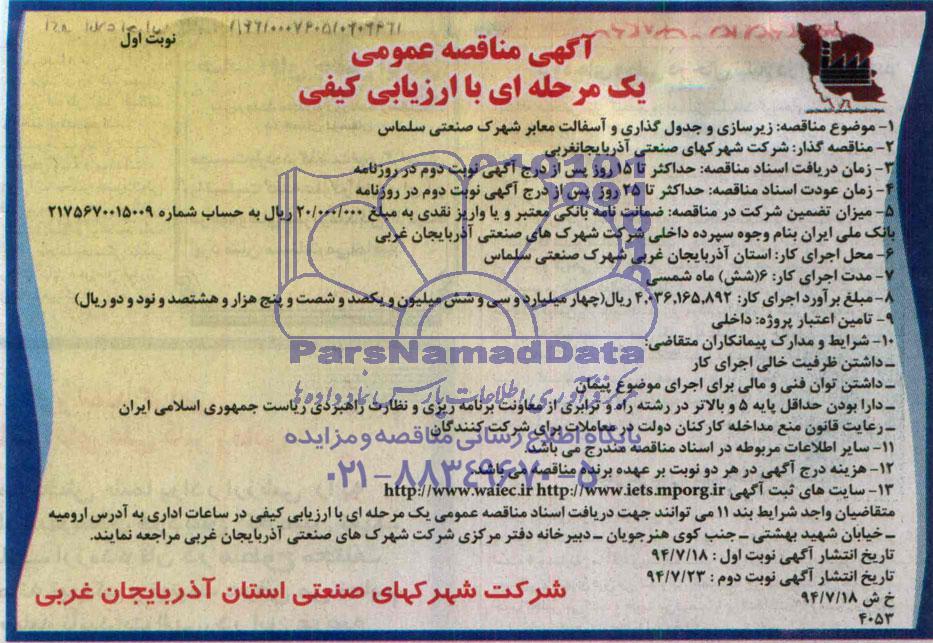 نوبت اول
آگهی مناقصه عمومی
یک مرحله ای با ارزیابی کیفی
۱- موضوع مناقصه: زیرسازی و جدول گذاری و آسفالت معابر شهرک صنعتی سلماس
۲- مناقصه گذار: شرکت شهرکهای صنعتی آذربایجانغربی
۳- زمان دریافت اسناد مناقصه: حداکثر تا ۱۵ روز پس از درج آگهی نوبت دوم در روزنامه
۴- زمان عودت اسناد مناقصه: حداکثر تا ۲۵ روز پس از درج آگهی نوبت دوم در روزنامه
۵- میزان تضمین شرکت در مناقصه: ضمانت نامه بانکی معتبر و یا واریز نقدی به مبلغ ۲۰/۰۰۰/۰۰۰ ریال به حساب شماره ۲۱۷۵۶۷۰۰۱۵۰۰۹
بانک ملی ایران بنام وجوه سپرده داخلی شرکت شهرک های صنعتی آذربایجان غربی
۶- محل اجرای کار: استان آذربایجان غربی شهرک صنعتی سلماس
۷- مدت اجرای کار: ۶(شش) ماه شمسی
۸- مبلغ برآورد اجرای کار: ۴،۰۳۶،۱۶۵،۸۹۲ ریال(چهار میلیارد و سی و شش میلیون و یکصد و شصت و پنج هزار و هشتصد و نود و دو ریال)
۹- تامین اعتبار پروژه: داخلی
۱۰- شرایط و مدارک پیمانکاران متقاضی:
ـ داشتن ظرفیت خالی اجرای کار
ـ داشتن توان فنی و مالی برای اجرای موضوع پیمان
ـ دارا بودن حداقل پایه ۵ و بالاتر در رشته راه و ترابری از معاونت برنامه ریزی و نظارت راهبردی ریاست جمهوری اسلامی ایران
ـ رعایت قانون منع مداخله کارکنان دولت در معاملات برای شرکت کنندگان
۱۱- سایر اطلاعات مربوطه در اسناد مناقصه مندرج می باشد.
۱۲- هزینه درج آگهی در هر دو نوبت بر عهده برنده مناقصه می باشد.
۱۳- سایت های ثبت آگهی http://www.waiec.ir http://www.iets.mporg.ir
متقاضیان واجد شرایط بند ۱۱ می توانند جهت دریافت اسناد مناقصه عمومی یک مرحله ای با ارزیابی کیفی در ساعات اداری به آدرس ارومیه
ـ خیابان شهید بهشتی ـ جنب کوی هنرجویان ـ دبیرخانه دفتر مرکزی شرکت شهرک های صنعتی آذربایجان غربی مراجعه نمایند.
تاریخ انتشار آگهی نوبت اول : ۹۴/۷/۱۸
تاریخ انتشار آگهی نوبت دوم : ۹۴/۷/۲۳
خ ش ۹۴/۷/۱۸
۴۰۵۳
شرکت شهرکهای صنعتی استان آذربایجان غربی
ParsNamadData
مرکز فرآوری اطلاعات پارس نماد داده ها
پایگاه اطلاع رسانی مناقصه و مزایده
۰۲۱-۸۸۳۴۹۶۷۰-۵